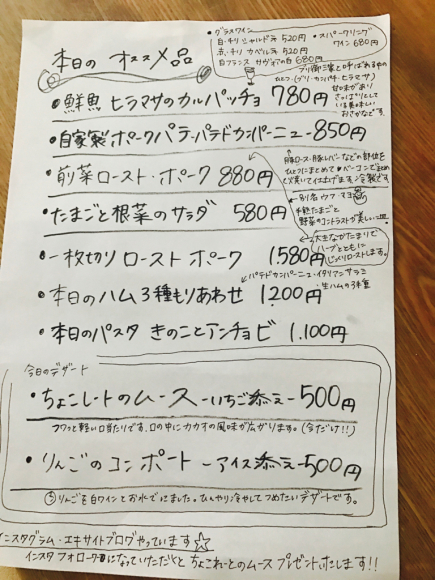 本日の オススメ品
・グラスワイン
白・チリ シャルドネ 520円
赤・チリ カベルネ 520円
白フランス サヴォアの白 680円
・スパークリング
ワイン 680円
・鮮魚 ヒラマサのカルパッチョ 780円
ブリ御三家と呼ばれる中の
ひとつ、(ブリ・カンパチ・ヒラマサ)
甘味があり
さっぱりとして
いる美味しい
おさかなです。
・自家製ポークパテ-パテドカンパーニュー850円
豚ロース・豚レバーなどの部位を
ひとつにまとめて
ベーコンで
て焼いて仕上げます。冷製です。
・前菜ロースト・ポーク 880円
・たまごと根菜のサラダ 580円
別名ウフ・マヨ
半熟たまごと
野菜のコントラストが美しい一皿。
・一枚切りローストポーク 1580円
大きなかたまりで
ハーブとともに
じっくりローストします。
・本日のハム3種もりあわせ 1200円
パテドカンパーニュ・イタリアンサラミ
・生ハムの3種
・本日のパスタ きのことアンチョビ 1.100円
今日のデザート
・ちょこれートのムース -いちご添え- 500円
フワッと軽い口当たりです、口の中にカカオの風味が広がります。(今だけ!!)
・りんごのコンポート -アイス添え- 500円
りんごを白ワインとお水でにました。ひんやり冷やしてつめたいデザートです。
インスタグラム・エキサイトブログやっています☆
インスタフォローワーになっていただくと ちょこれーとのムース プレゼントします!!